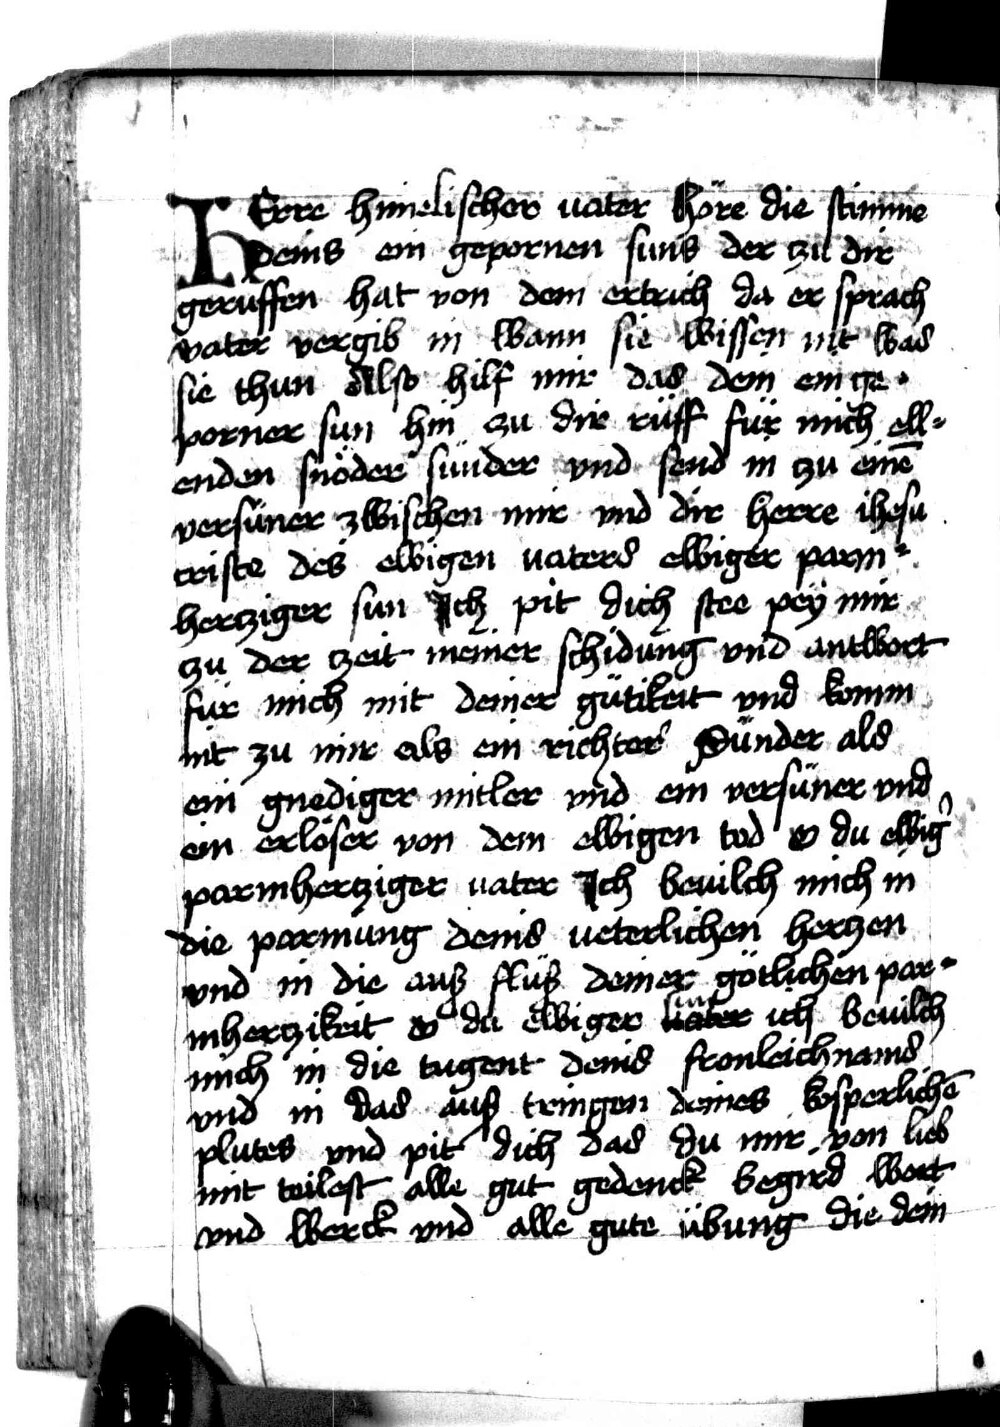 HErre himelischer uater höre die stimme
deins ein gepornen suns der tzu dir
geruffen hat von dem ertrich da er sprach
vater vergib in wann sie wissen nit was
sie thun Also hilf mir das dein ein ge-
porner sun hin zu dir rüff für mich ell-
enden snöder sünder vnd send in tzu einē
versüner zwischen mir vnd dir herre ihesu
criste des ewigen uaters ewiger parm-
hertziger sun Ich pit dich stee pey mir
zu der tzeit meiner schidung vnd antwort
für mich mit deiner gütikeit vnd komm
nit zu mir als ein richter Sünder als
ein gnediger mitler vnd ein versüner vnd
ein erlöser von dem ewigen tod O du ewig
parmhertziger uater Ich beuilch mich in
die parmung deins ueterlichen hertzen
vnd in die auß flüß deiner götlichen par-
mhertzikeit O du ewiger sun uater ich beuilch
mich in die tugent deins fronleichnams
vnd in das auß tringen deines kosperlichē
plutes vnd pit dich das du mir von lieb
mit teilest alle gut gedenck begird wort
vnd werck vnd alle gute übung die dein